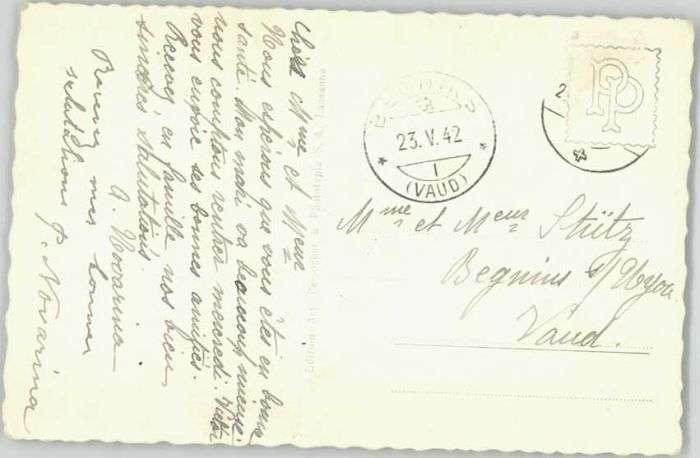 Chers Mme et Meur
Nous espérons que vous êtes en bonne
santé. Mon mari va beaucoup mieux.
nous comptons rentrer mercredi. Victor
vous envoie ses bonnes amitiés.
Recevez en famille nos bien
sincères salutations.
A. Novarina
Recevez mes bonnes
salutations P. Novarina
Edition Perrochet Phototypie S. A., Lausanne
23. V. 42
1
(VAUD)
2
PP
Mme et Meur Stütz
Begnins s/Nyon
Vaud.